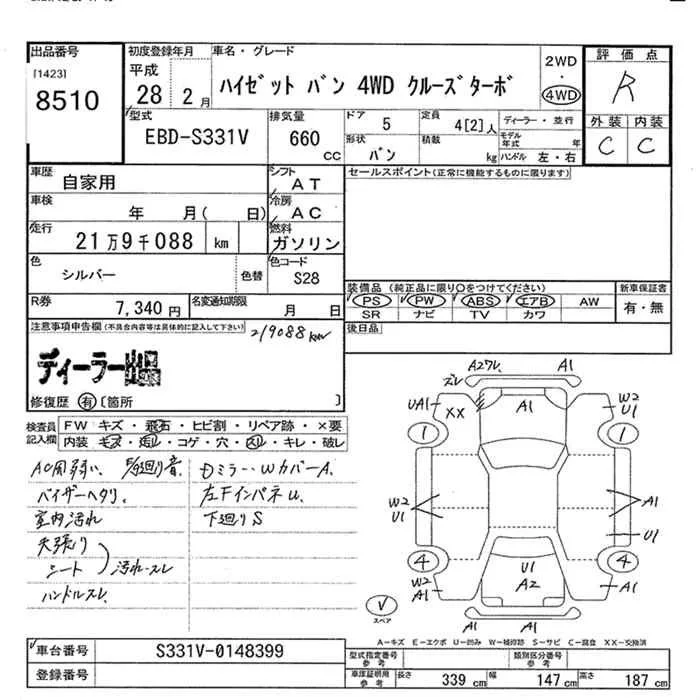 出品番号 初度登録年月 車名・グレード 2WD・4WD 評価点
[1423] 8510 平成 28 2月 ハイゼット バン 4WD クルーズターボ R
型式 EBD-S331V 排気量 660 CC ドア 5 定員 4[2]人 ディーラー・並行 外装 内装
形状 バン 積載 kg モデル年式 年 ハンドル 左・右 C C
車歴 自家用 シフト AT セールスポイント(正常に機能するものに限ります)
車検 年 月( 日) 冷房 AC
走行 21万9千088 km 燃料 ガソリン
色 シルバー 色替 色コード S28
装備品(純正品に限り○をつけてください) 新車保証書
R券 7,340円 名変通知期限 月 日 PS PW ABS エアB AW 有・無
SR ナビ TV カワ
注意事項申告欄(不具合内容等は具体的に記入して下さい) 219088km 後日品
ディーラー出品
修復歴 有 〔箇所 〕
検査員記入欄 FW キズ・飛石・ヒビ割・リペア跡・×要
内装 キズ・汚れ・コゲ・穴・スレ・キレ・破レ
AC用弱い、 音 ミラー・Wカバー A.
バイザーヘタリ. 左Fインパネ U.
室内汚れ 下廻り S
天張り
シート 汚れ・スレ
ハンドルスレ.
A2ワレ. A1
ズレ
UA1 XX A1 W2 U1
1 1
W2 U1 A1
U1
4 4
W2 A1 U1 A2 A1
スペア A1 A1
A-キズ E-エクボ U-凹み W-補修跡 S-サビ C-腐食 XX-交換済
車台番号 S331V-0148399 型式指定番号 参考 類別区分番号 参考
登録番号 車庫証明用 参考 長さ 339 cm 幅 147 cm 高さ 187 cm